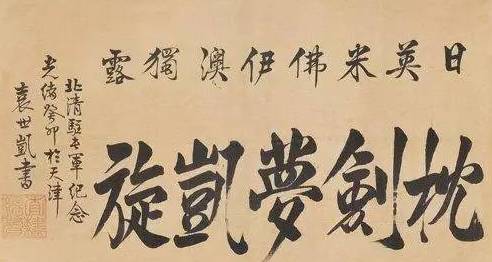 日英米佛伊澳獨露
枕劍夢凱旋
北清駐屯軍紀念
光緒癸卯於天津
袁世凱書